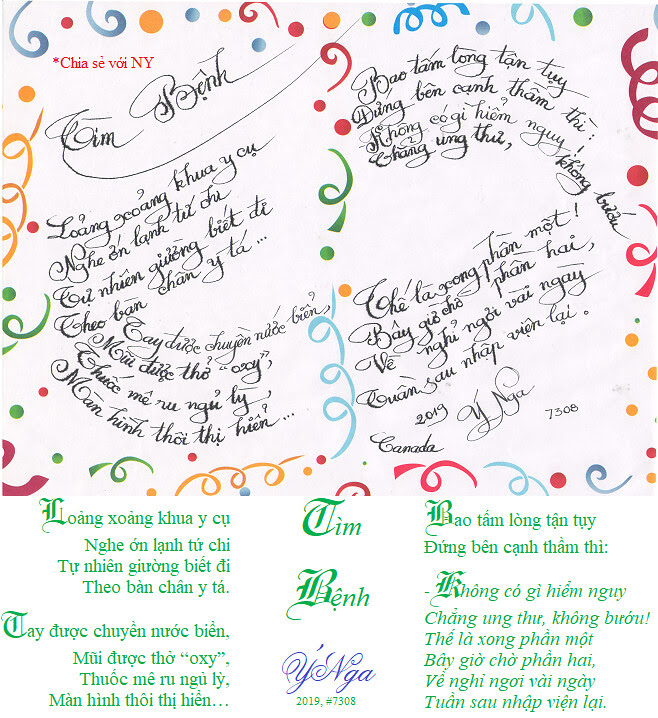 *Chia sẻ với NY
Tìm Bệnh
Loảng xoảng khua y cụ
Nghe ớn lạnh tứ chi
Tự nhiên giường biết đi
Theo bàn chân y tá...
Tay được chuyền nước biển,
Mũi được thở "oxy",
Thuốc mê ru ngủ lỳ,
Màn hình thôi thị hiển...
Bao tấm lòng tận tụy
Đứng bên cạnh thầm thì:
Không có gì hiểm nguy!
Chẳng ung thư, không bướu
Thế là xong phần một!
Bây giờ chờ phần hai,
Về nghỉ ngơi vài ngày
Tuần sau nhập viện lại.
2019 Ý Nga 7308
Canada
Loảng xoảng khua y cụ
Nghe ớn lạnh tứ chi
Tự nhiên giường biết đi
Theo bàn chân y tá.
Tay được chuyền nước biển,
Mũi được thở “oxy”,
Thuốc mê ru ngủ lỳ,
Màn hình thôi thị hiển…
Tìm
Bệnh
Ý Nga
2019, #7308
Bao tấm lòng tận tụy
Đứng bên cạnh thầm thì:
- Không có gì hiểm nguy
Chẳng ung thư, không bướu!
Thế là xong phần một
Bây giờ chờ phần hai,
Về nghỉ ngơi vài ngày
Tuần sau nhập viện lại.